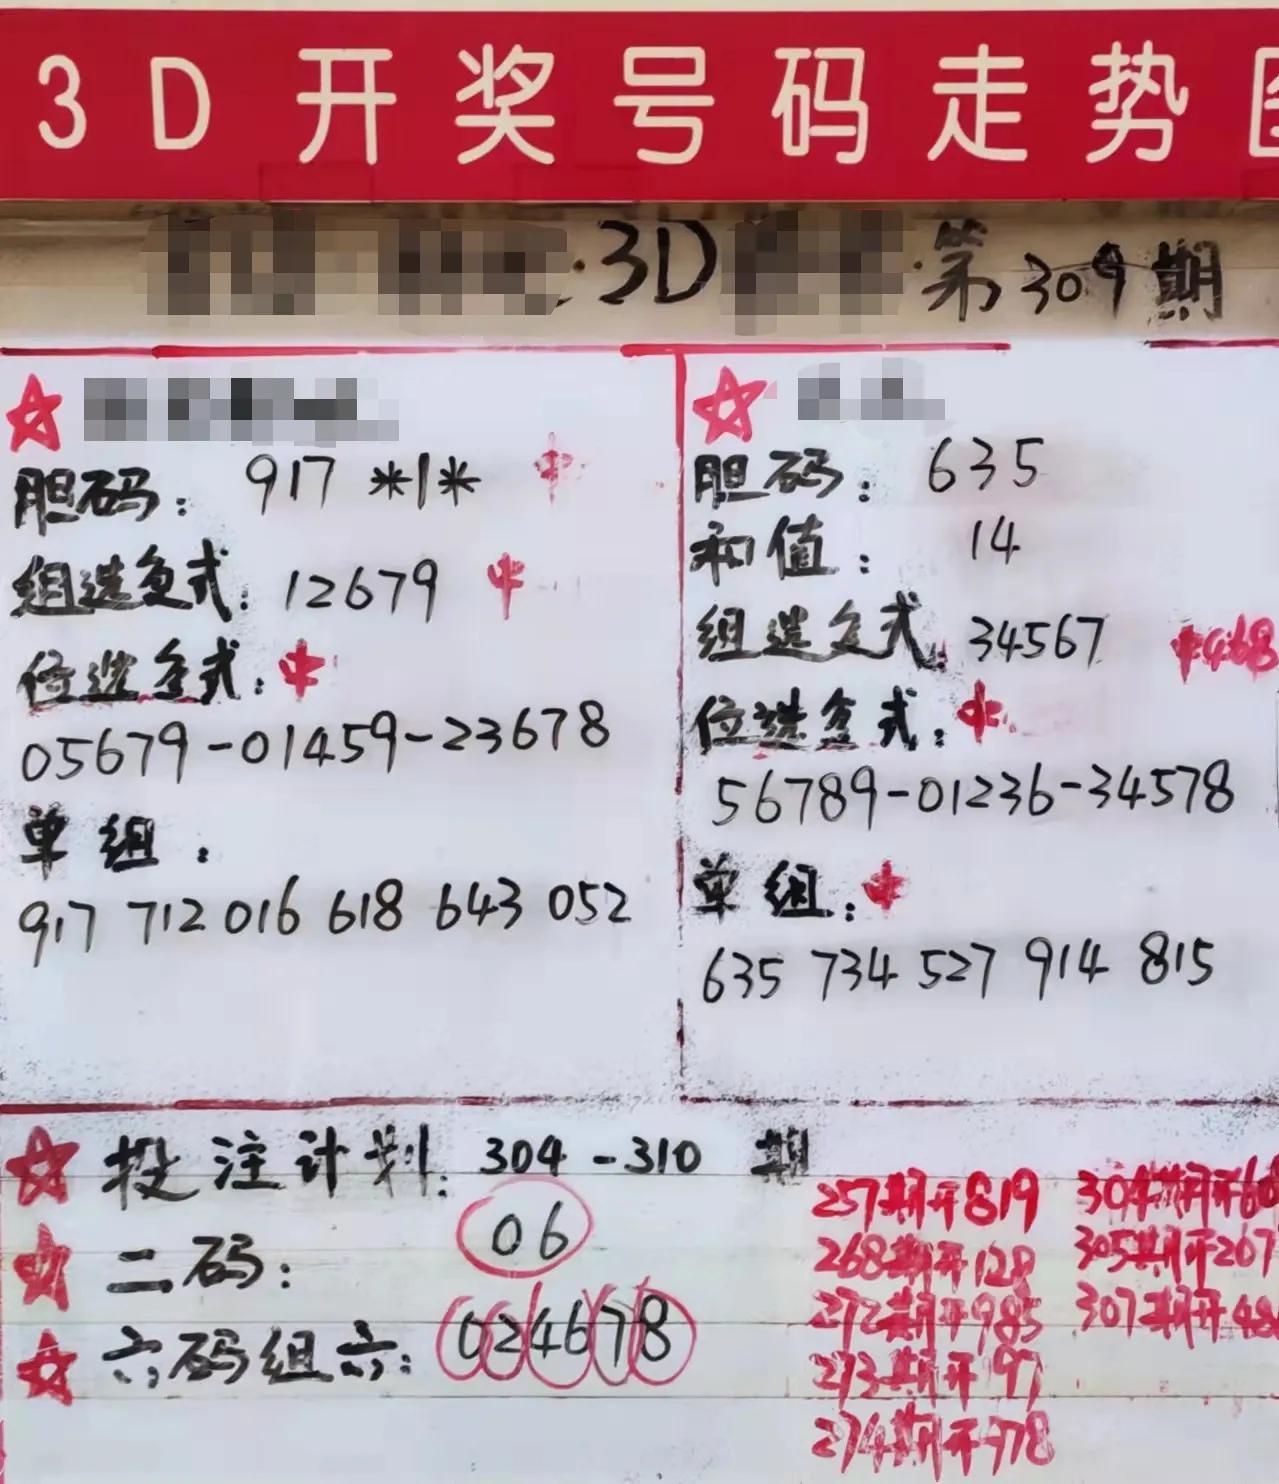 3D开奖号码走势
3D 第309期
胆码: 917 *1* 中
组选复式: 12679 中
位选复式: 中
05679-01459-23678
单组:
917 712 016 618 643 052
胆码: 635
和值: 14
组选复式: 34567 中468
位选复式: 中
56789-01236-34578
单组: 中
635 734 527 914 815
投注计划: 304-310 期
二码: 06
六码组六: 024678
257期开819
268期开128
272期开985
273期开97
274期开778
304期开60
305期开267
307期开48